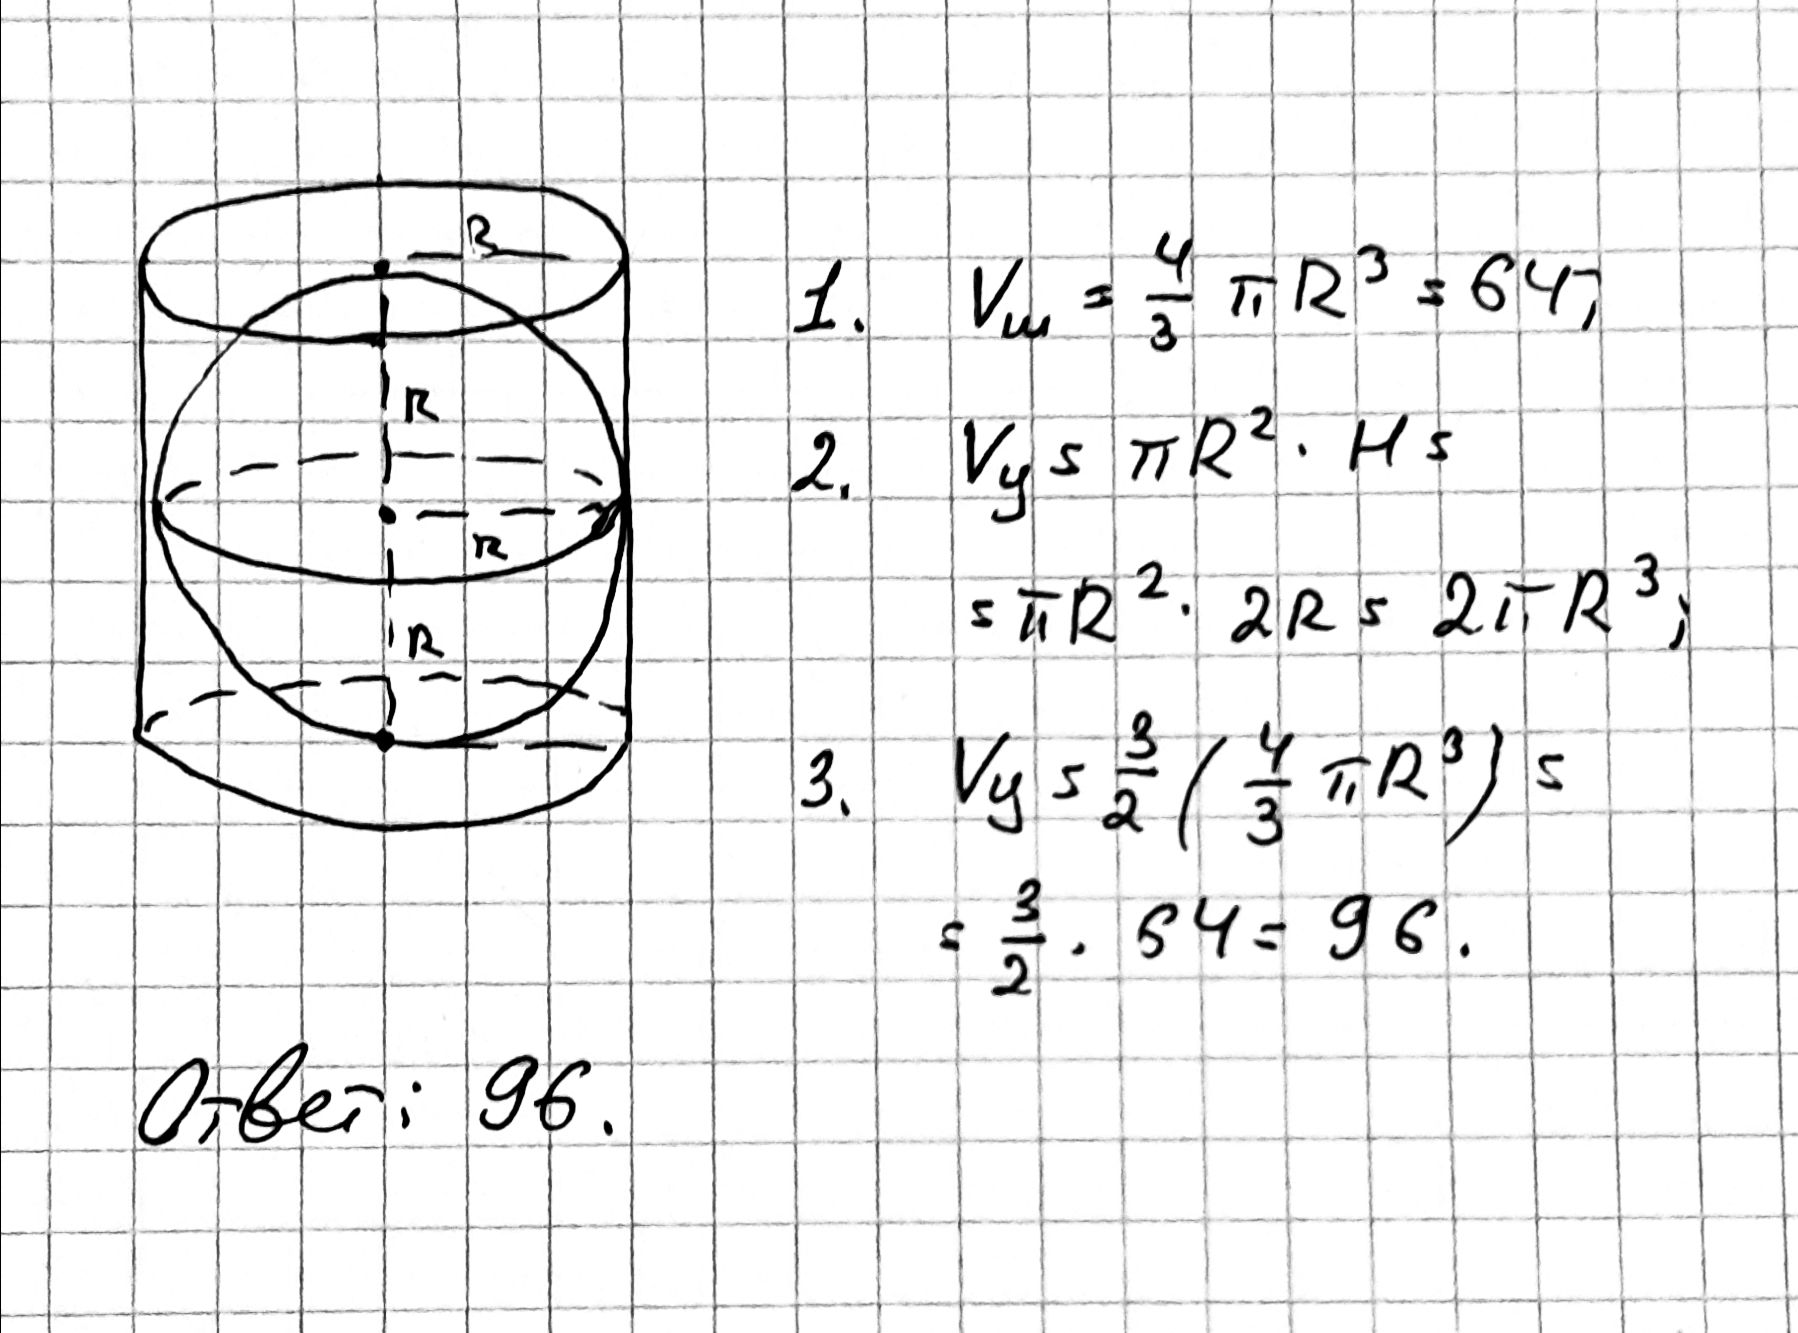 R
R
R
R
1. Vш = 4/3 πR³ = 64;
2. Vц = πR² · H =
= πR² · 2R = 2πR³;
3. Vц = 3/2 (4/3 πR³) =
= 3/2 · 64 = 96.
Ответ: 96.